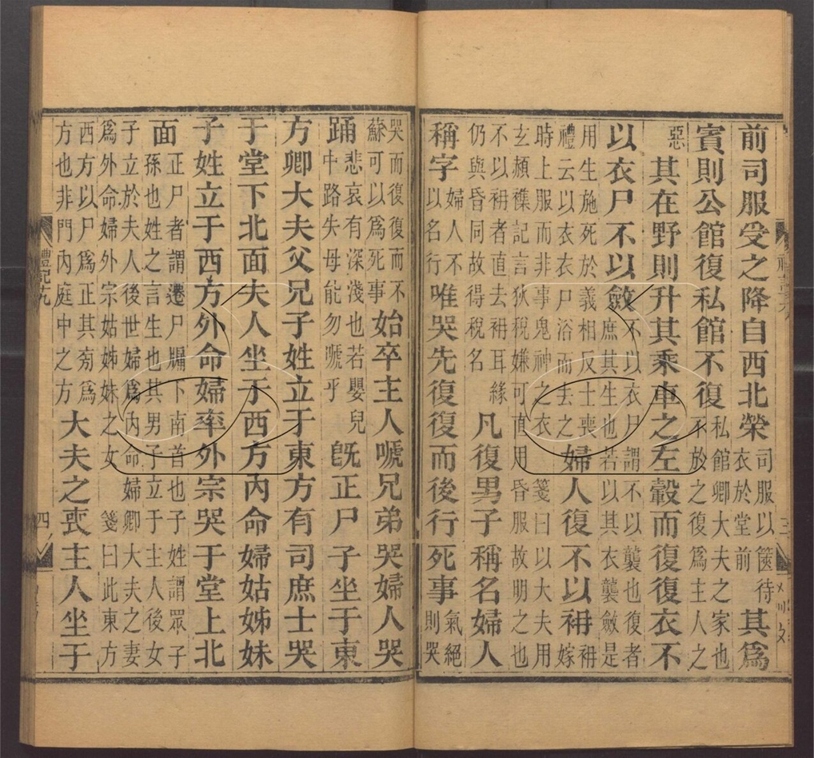 前司服受之降自西北榮司服以篋待衣於堂前其爲
賓則公館復私館不復私館卿大夫之家也不於之復爲主人之
惡其在野則升其乘車之左轂而復復衣不
以衣尸不以斂不以衣尸謂不以襲也復者庶其生也若以其衣襲斂是
用生施死於義相反士喪禮云以衣衣尸浴而去之婦人復不以袡袡嫁
時上服而非事鬼神之衣 箋曰以大夫用
玄頳記言狄稅嫌可直用昏服故明之也
不以袡者直去袡耳緣仍與昏同故得稅名凡復男子稱名婦人
稱字婦人不以名行唯哭先復復而後行死事氣絕則哭
哭而復復而不蘇可以爲死事始卒主人嗁兄弟哭婦人哭
踊悲哀有深淺也若嬰兒中路失母能勿嗁乎旣正尸子坐于東
方卿大夫父兄子姓立于東方有司庶士哭
于堂下北面夫人坐于西方內命婦姑姊妹
子姓立于西方外命婦率外宗哭于堂上北
面正尸者謂遷尸牖下南首也子姓謂眾子孫也姓之言生也其男子立于主人後女
子立於夫人後世婦爲內命婦卿大夫之妻
爲外命婦外宗姑姊妹之女 箋曰此東方
西方以尸爲正其旁爲方也非門內庭中之方大夫之喪主人坐于
禮記九
四